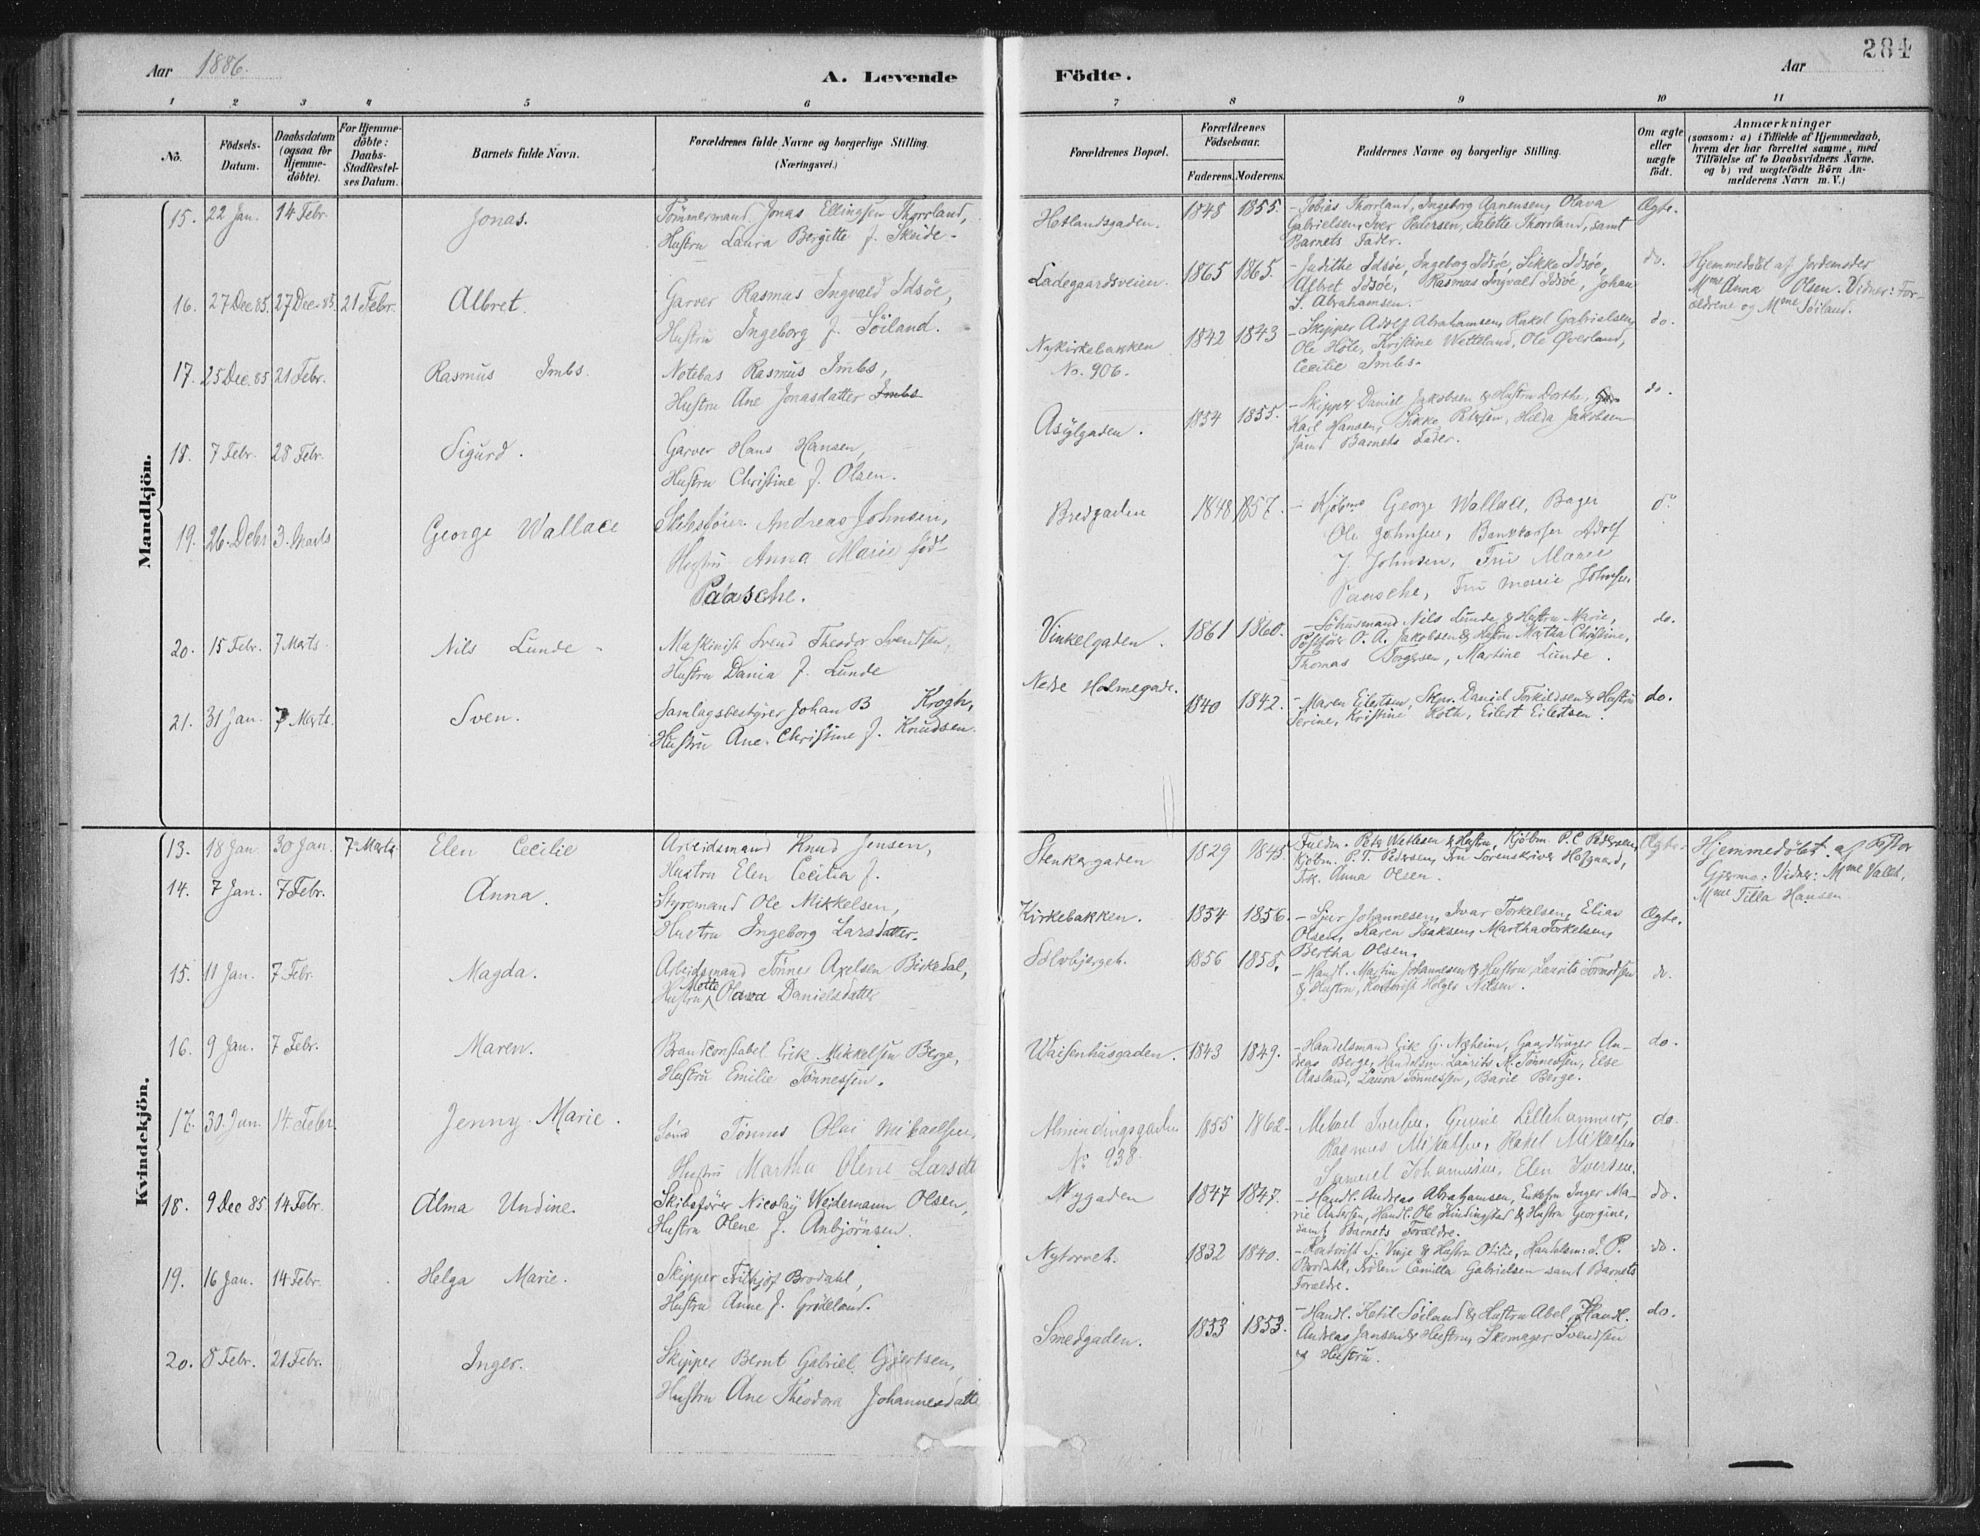 Aar 1886.
A. Levende
1 2 3 4 5 6
No.
Födsels-Datum.
Daabsdatum (ogsaa för Hjemme-döbte).
For Hjemme-döbte: Daabs-Stadfæstelses Datum.
Barnets fulde Navn.
Forældrenes fulde Navne og borgerlige Stilling. (Næringsvei.)
Mandkjön.
15. 22 Jan. 14 Febr. Jonas. Tömmermand Jonas Ellingsen Thorsland,
Hustru Laura Bergitte f. Skeide
16. 27 Dec 85. 27 Dec. 85 21 Febr. Albret. Garver Rasmus Ingvald Idsöe,
Hustru Ingeborg f. Söiland.
17. 25 Dec. 85 21 Febr. Rasmus Imbs. Notebas Rasmus Imbs,
Hustru Ane Jonasdatter Imbs
18. 7 Febr. 28 Febr. Sigurd. Garver Hans Hansen,
Hustru Christine f. Olsen.
19. 26. Debr 3. Marts George Wallace Andreas Johnsen,
Hustru Anna Marie föd
Paasche.
20. 15 Febr. 7 Marts Nils Lunde Maskinist Svend Theodor Svendsen,
Hustru Dania f. Lunde
21. 31 Jan. 7 Marts. Sven. Samlagsbestyrer Johan B Krogh,
Hustru Ane Christine f. Knudsen.
Kvindekjön.
13. 18 Jan. 30 Jan. 7 Marts Elen Cecilie Arbeidsmand Knud Jensen,
Hustru Elen Cecilia f.
14. 7 Jan. 7 Febr. Anna. Styremand Ole Mikkelsen,
Hustru Ingeborg Larsdatter.
15. 11 Jan. 7 Febr. Magda. Arbeidsmand Tönnes Axelsen Birkedal,
Hustru Motte Olava Danielsdatter
16. 9 Jan. 7 Febr. Maren. Brandconstabel Erik Mikkelsen Berge,
Hustru Emilie Tönnessen.
17. 30. Jan. 14 Febr. Jenny Marie. Tönnes Olai Mikaelsen,
Hustru Martha Olene Larsdtr
18. 9 Dec 85. 14 Febr. Alma Undine. Skibsförer Nicolay Weidemann Olsen,
Hustru Olene f. Anbjörnsen.
19. 16 Jan. 14 Febr. Helga Marie. Skipper Fritkjof Brodahl,
Hustru Anne f. Grödeland.
20. 8 Febr. 21 Febr. Inger. Skipper Bernt Gabriel Gjertsen,
Hustru Ane Theodora Johannesdatte
Födte.
Aar
284
7 8 9 10 11
Forældrenes Bopæl.
Forældrenes Födselsaar. Faderens. Moderens.
Faddernes Navne og borgerlige Stilling.
Om ægte eller uægte födt.
Anmærkninger
(saasom: a) i Tilfælde af Hjemmedaab, hvem der har forrettet samme, med Tilföielse af to Daabsvidners Navne, og b) ved uægtefödte Börn Anmelderens Navn m. V.)
Hetlandsgaden. 1848 1855. Tobias Thorsland, Ingeborg Asmensen, Olava Ægte.
Gabrielsen, Iver Pedersen, Talette Thorsland, samt
Barnets Fader.
Ladegaardsveien. 1865 1865. Judithe Idsöe, Ingeborg Idsöe, Sikke Idsöe, do. Hjemmedöbt af Jordemoder
Albret Idsöe, Rasmus Ingvald Idsöe, Johan Mme Anna Olsen. Vidner: For-
S. Abrahamsen. ældrene og Mme Söiland.
Nykirkebakken No. 906. 1842 1843 Skipper Adolf Abrahamsen, Rakel Gabrielsen, do.
Ole Höle, Kristine Wetteland, Ole Øverland,
Cecilie Imbs.
Asylgaden. 1854 1855. Skipper Daniel Jakobsen & Hustru Dorthe, do.
Karl Hansen, Sikke Petersen, Hilda Jakobsen
samt Barnets Fader.
Bredgaden 1848 1857. Kjöbm George Wallace, Bager do
Ole Johnsen, Bankkasser Adolf
J. Johnsen, Fru Marie
Paasche, Fru Marie Johnsen.
Vinkelgaden. 1861 1860. Nils Lunde & Hustru Marie, do.
O. A. Jakobsen & Hustru Martha Christine,
Thomas Torgersen, Martine Lunde.
Nedre Holmegade. 1840 1842. Maren Eilertsen, Skpr. Daniel Torkildsen & Hustru do.
Serine, Kristine Roth, Eilert Eilertsen.
Stenkargaden 1829 1845. Fuldm. Petr Wathsen & Hustru, Kjöbm. P. C. Pedersen, Ægte. Hjemmedöbt af Pastor
Kjöbm. P. T. Pedersen, Fru Sorenskriver Hofgaard, Gjerms: Vidner: Mme Valet,
Frk. Anna Olsen. Mme Tilla Hansen
Kirkebakken. 1854 1856. Sjur Johannesen, Ivar Torkelsen, Elias Ægte.
Olsen, Karen Isaksen, Martha Torkelsen,
Bertha Olsen.
Sölvbjerget. 1856 1858. Handl. Martin Johannesen & Hustru, Laurits Tormodsen do.
& Hustru, Kontorist Holger Nilsen.
Waisenhusgaden. 1843 1849. Handelsmand Eik G. Næheim, Gaardbruger An- do.
dreas Berge, Handelsm. Laurits M. Tönnessen, Else
Aasland, Laura Tönnessen, Barie Berge.
Almindingsgaden No 938 1855 1862. Mikael Iversen, Gurine Lillehammer, do.
Rasmus Mikalsen, Rakel Mikalsen
Samuel Johannesen, Elen Iversen.
Nygaden 1847 1847. Handl. Andreas Abrahamsen, Enkefru Inger Ma- do.
rie Andersen, Handl. Ole Hindingstad & Hustru Georgine,
samt Barnets Forældre.
Nytorvet. 1832 1840. Kontorist S. Vinje & Hustru Otilie, Handelsm: I. P. do.
Brodahl, Fröken Camilla Gabrielsen samt Barnets
Forældre.
Smedgaden. 1853 1853. Handl. Ketil Söiland & Hustru Abel, Handl. do.
Andreas Jansen & Hustru, Skomager Svendsen
& Hustru.